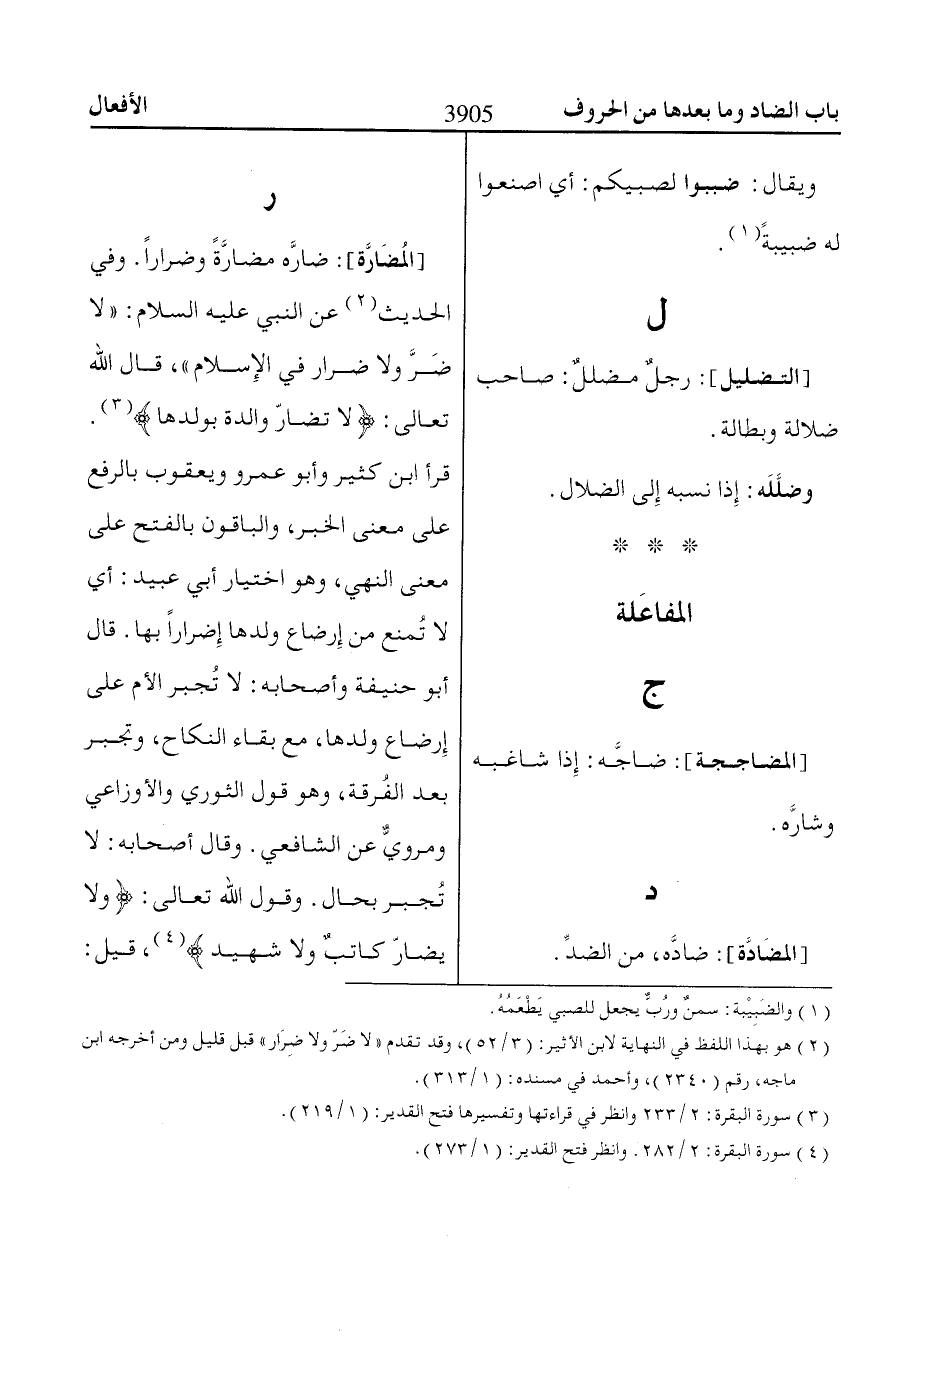 باب الضاد وما بعدها من الحروف
3905
الأفعال
ويقال: ضببوا لصبيكم: أي اصنعوا
له ضبيبةً(١).
ل
[التضليل]: رجلٌ مضللٌ: صاحب
ضلالة وبطالة.
وضلَّلَه: إذا نسبه إلى الضلال.
* * *
المفاعَلة
ج
[المضاججة]: ضاجَّه: إذا شاغبه
وشارَّه.
د
[المضَادَّة]: ضادَّه، من الضدِّ.
ر
[المُضَارَّة]: ضارَّه مضارَّةً وضراراً. وفي
الحديث(٢) عن النبي عليه السلام: «لا
ضَرَّ ولا ضرار في الإسلام»، قال الله
تعالى: ﴿لا تضارّ والدة بولدها﴾(٣).
قرأ ابن كثير وأبو عمرو ويعقوب بالرفع
على معنى الخبر، والباقون بالفتح على
معنى النهي، وهو اختيار أبي عبيد: أي
لا تُمنع من إرضاع ولدها إضراراً بها. قال
أبو حنيفة وأصحابه: لا تُجبر الأم على
إرضاع ولدها، مع بقاء النكاح، وتجبر
بعد الفُرقة، وهو قول الثوري والأوزاعي
ومرويٌّ عن الشافعي. وقال أصحابه: لا
تُجبر بحال. وقول الله تعالى: ﴿ولا
يضارّ كاتبٌ ولا شهيد﴾(٤)، قيل:
(١) والضَبِيْبة: سمنٌ ورُبٌّ يجعل للصبي يَطْعَمُهُ.
(٢) هو بهذا اللفظ في النهاية لابن الأثير: (٥٢/٣)، وقد تقدم «لا ضَرّ ولا ضِرَار» قبل قليل ومن أخرجه ابن
ماجه، رقم (٢٣٤٠)، وأحمد في مسنده: (٣١٣/١).
(٣) سورة البقرة: ٢٣٣/٢ وانظر في قراءتها وتفسيرها فتح القدير: (٢١٩/١).
(٤) سورة البقرة: ٢٨٢/٢. وانظر فتح القدير: (٢٧٣/١).